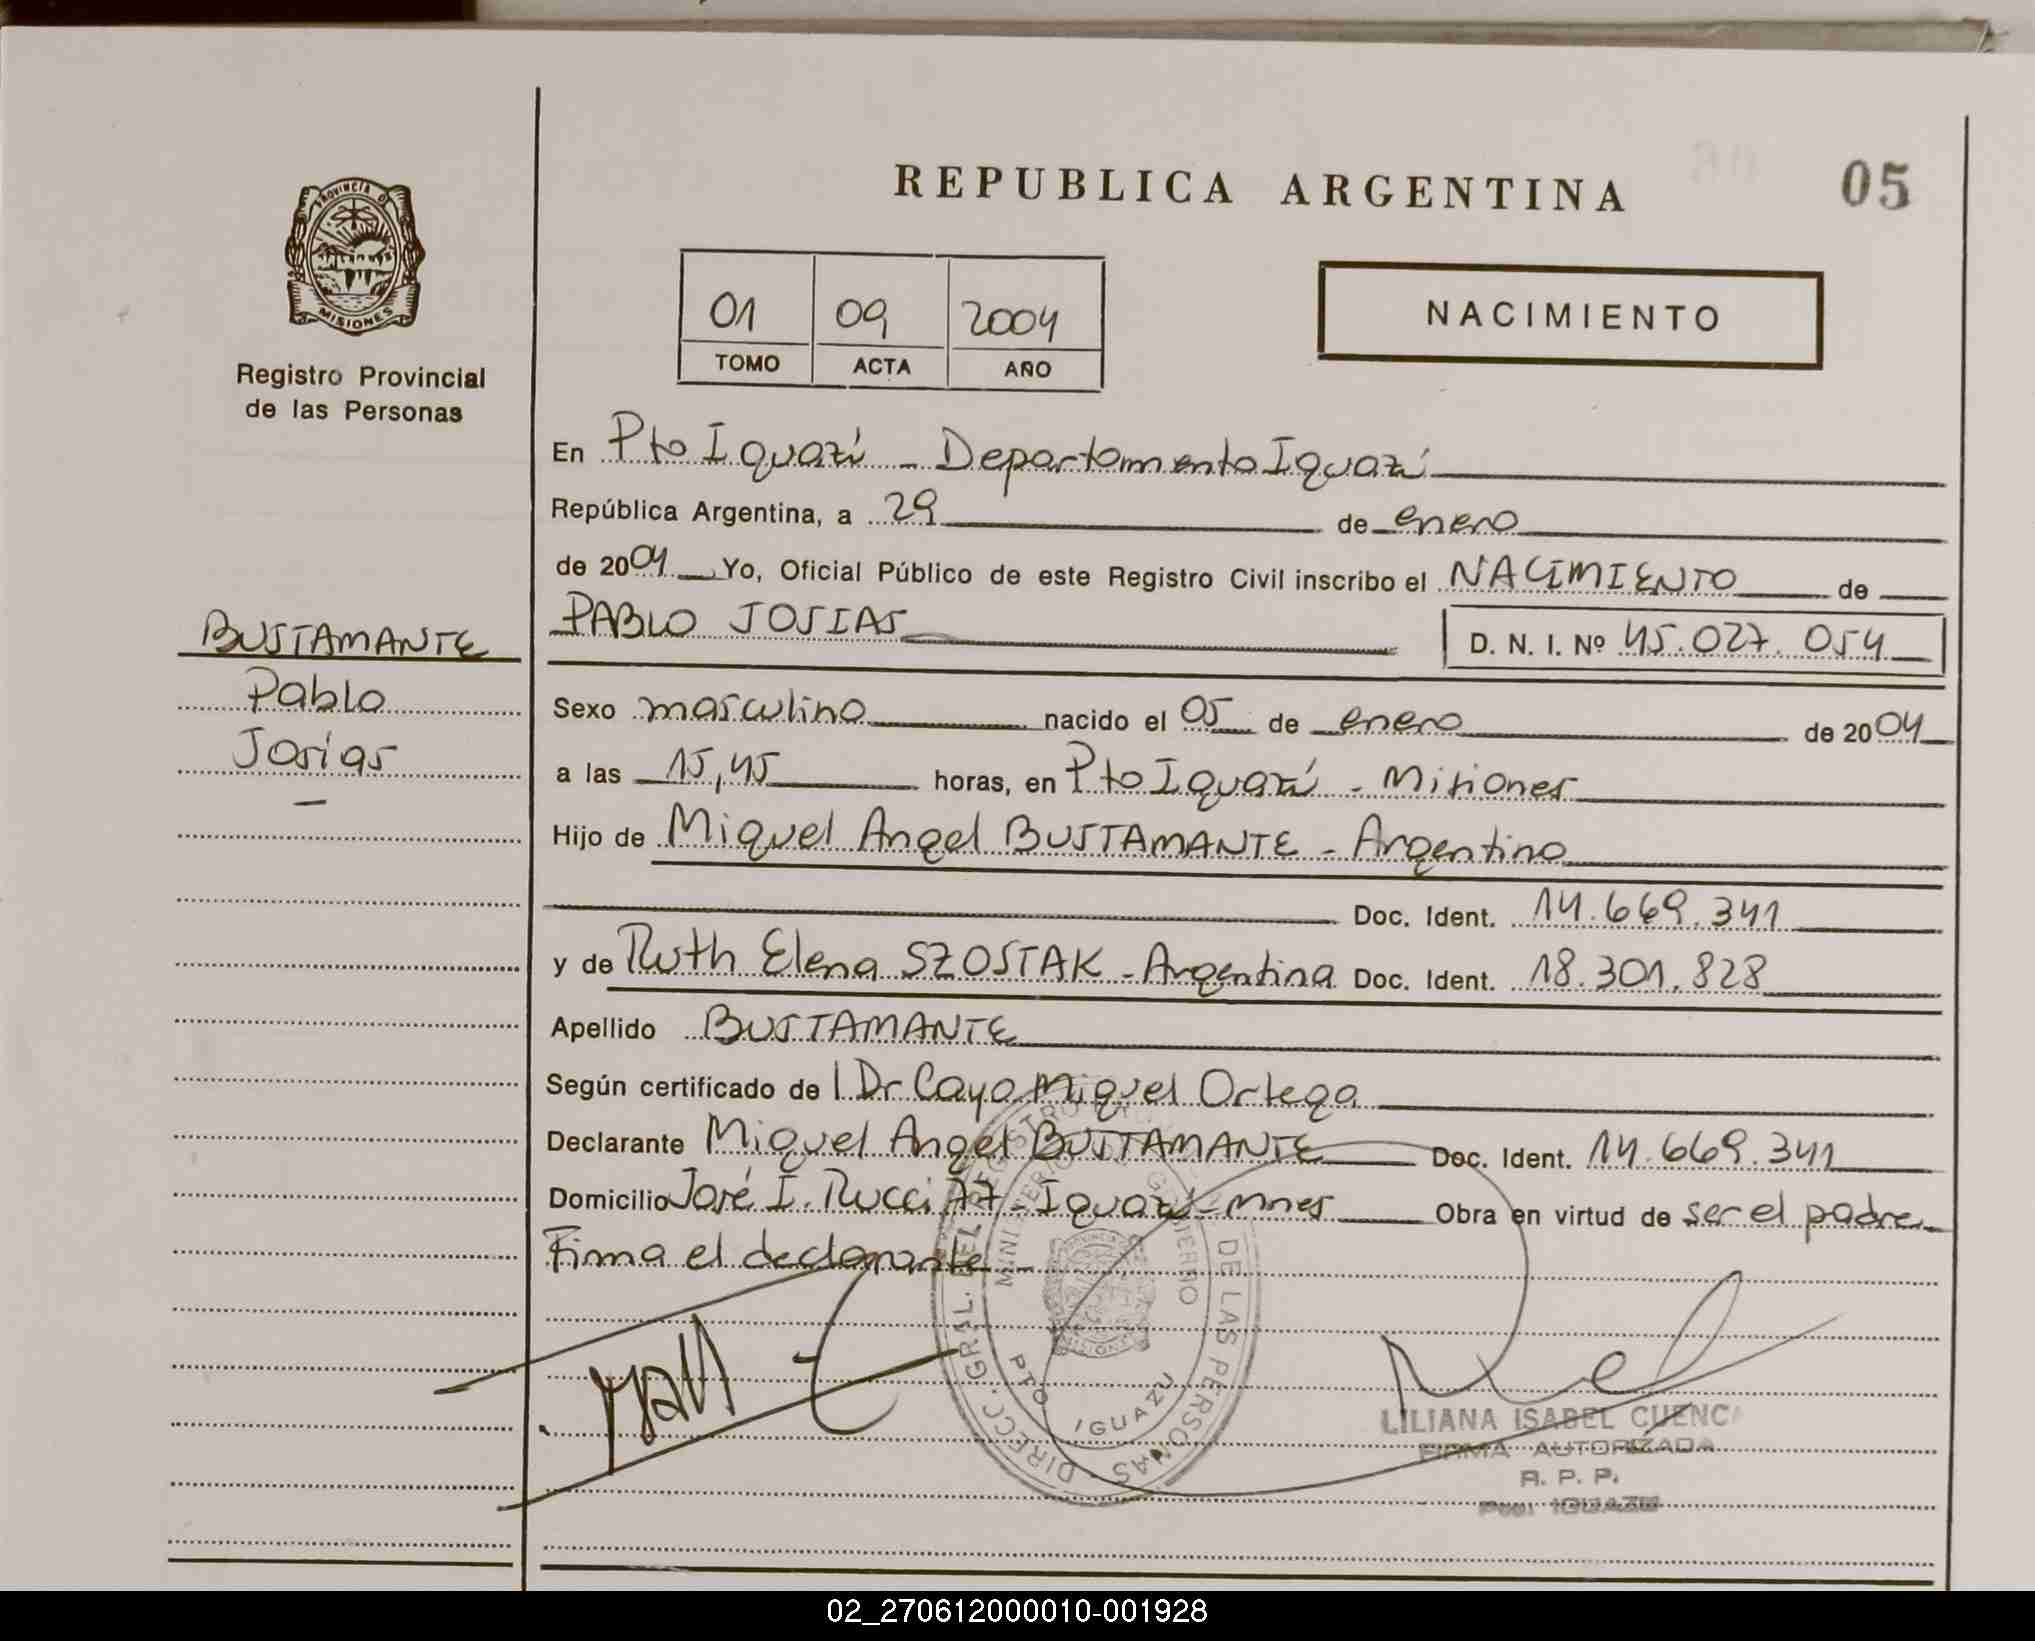 REPUBLICA ARGENTINA
05
PROVINCIA DE
MISIONES
Registro Provincial
de las Personas
01 09 2004
TOMO ACTA AÑO
NACIMIENTO
En Pto Iguazú - Departamento Iguazú
República Argentina, a 29 de enero
de 2004 Yo, Oficial Público de este Registro Civil inscribo el NACIMIENTO de
PABLO JOSIAS D. N. I. Nº 45.027.054
BUSTAMANTE
Pablo
Josías
Sexo masculino nacido el 05 de enero de 2004
a las 15,45 horas, en Pto Iguazú - Misiones
Hijo de Miguel Angel BUSTAMANTE - Argentino
Doc. Ident. 14.669.341
y de Ruth Elena SZOSTAK - Argentina Doc. Ident. 18.301.828
Apellido BUSTAMANTE
Según certificado de l Dr Cayo Miguel Ortega
Declarante Miguel Angel BUSTAMANTE Doc. Ident. 14.669.341
Domicilio José I. Rucci A7 - Iguazú - Mnes Obra en virtud de ser el padre
Firma el declarante -
DIRECC. GRAL. DEL REGISTRO DE LAS PERSONAS
MINISTERIO DE GOBIERNO
PTO IGUAZU
LILIANA ISABEL CUENCA
FIRMA AUTORIZADA
R. P. P.
IGUAZU
02_270612000010-001928